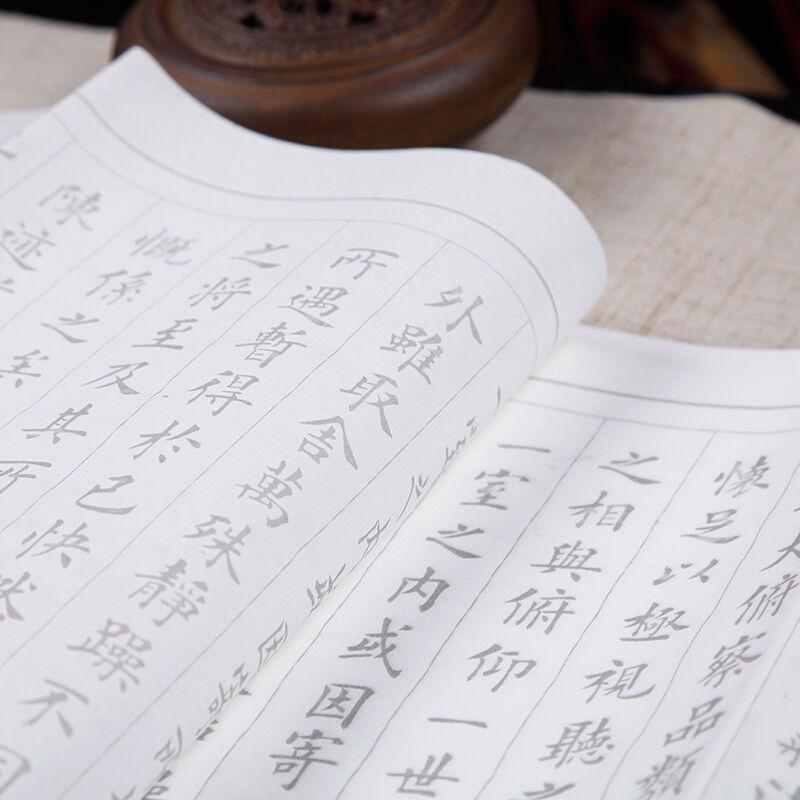 大俯察品類
懷足以極視聽之
之相與俯仰一世
一室之内或因寄
外雖取舍萬殊靜躁不同
所遇暫得於己快然
之將至及其所
慨係之矣
陳迹